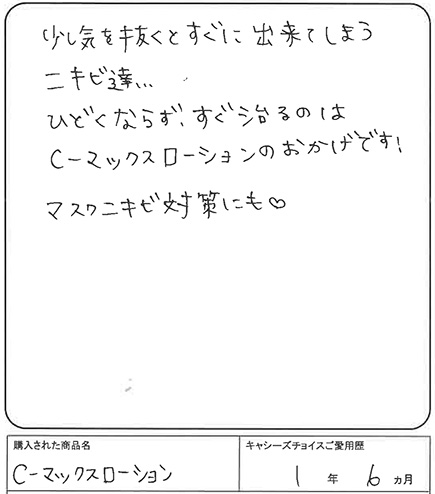 少し気を抜くとすぐに出来てしまう
ニキビ達...
ひどくならず、すぐ治るのは
C-マックスローションのおかげです!
マスクニキビ対策にも♡
購入された商品名
C-マックスローション
キャシーズチョイスご愛用歴
1年6ヵ月